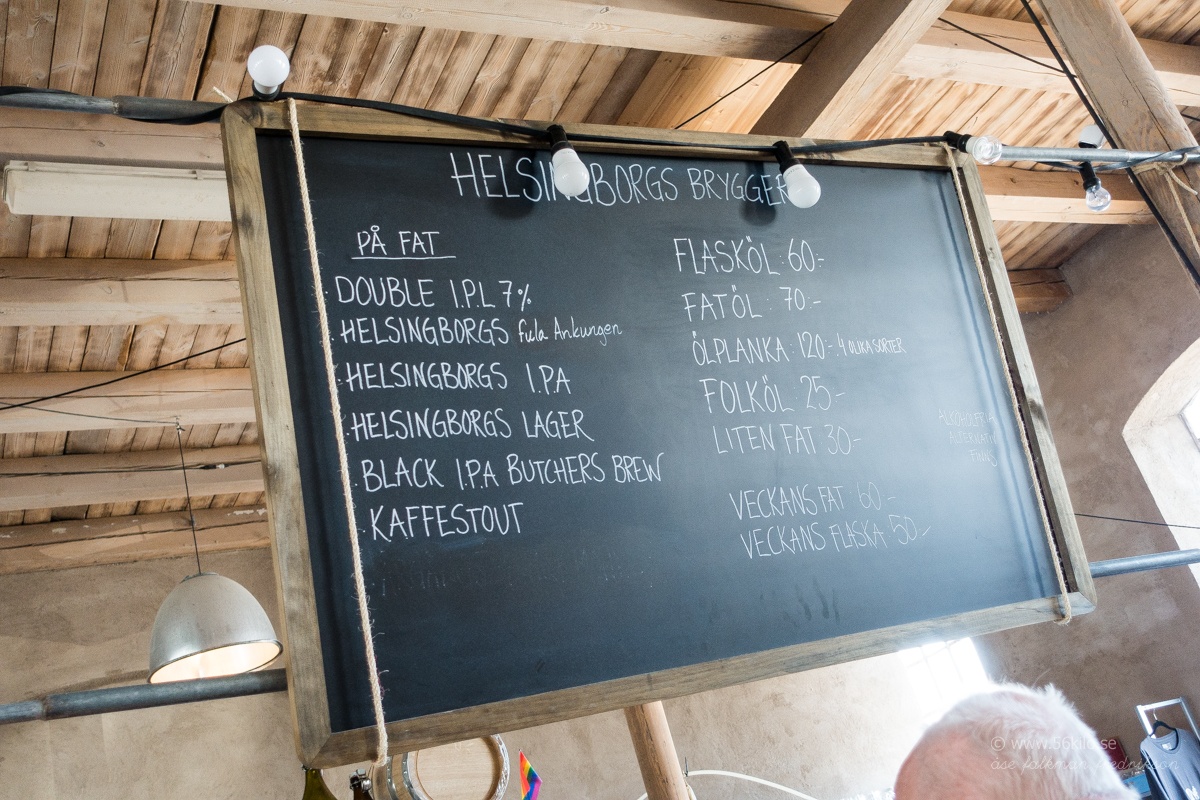 HELSINGBORGS BRYGGERI
PÅ FAT
· DOUBLE I.P.L 7%
· HELSINGBORGS Fula Ankungen
· HELSINGBORGS I.P.A
· HELSINGBORGS LAGER
· BLACK I.P.A BUTCHERS BREW
· KAFFESTOUT
FLASKÖL: 60:-
FATÖL: 70:-
ÖLPLANKA: 120:- 4 OLIKA SORTER
FOLKÖL 25-
LITEN FAT 30-
ALKOHOLFRIA
ALTERNATIV
FINNS
VECKANS FAT 60-
VECKANS FLASKA 50-
© www.56kilo.se
åse falkman fredrikson